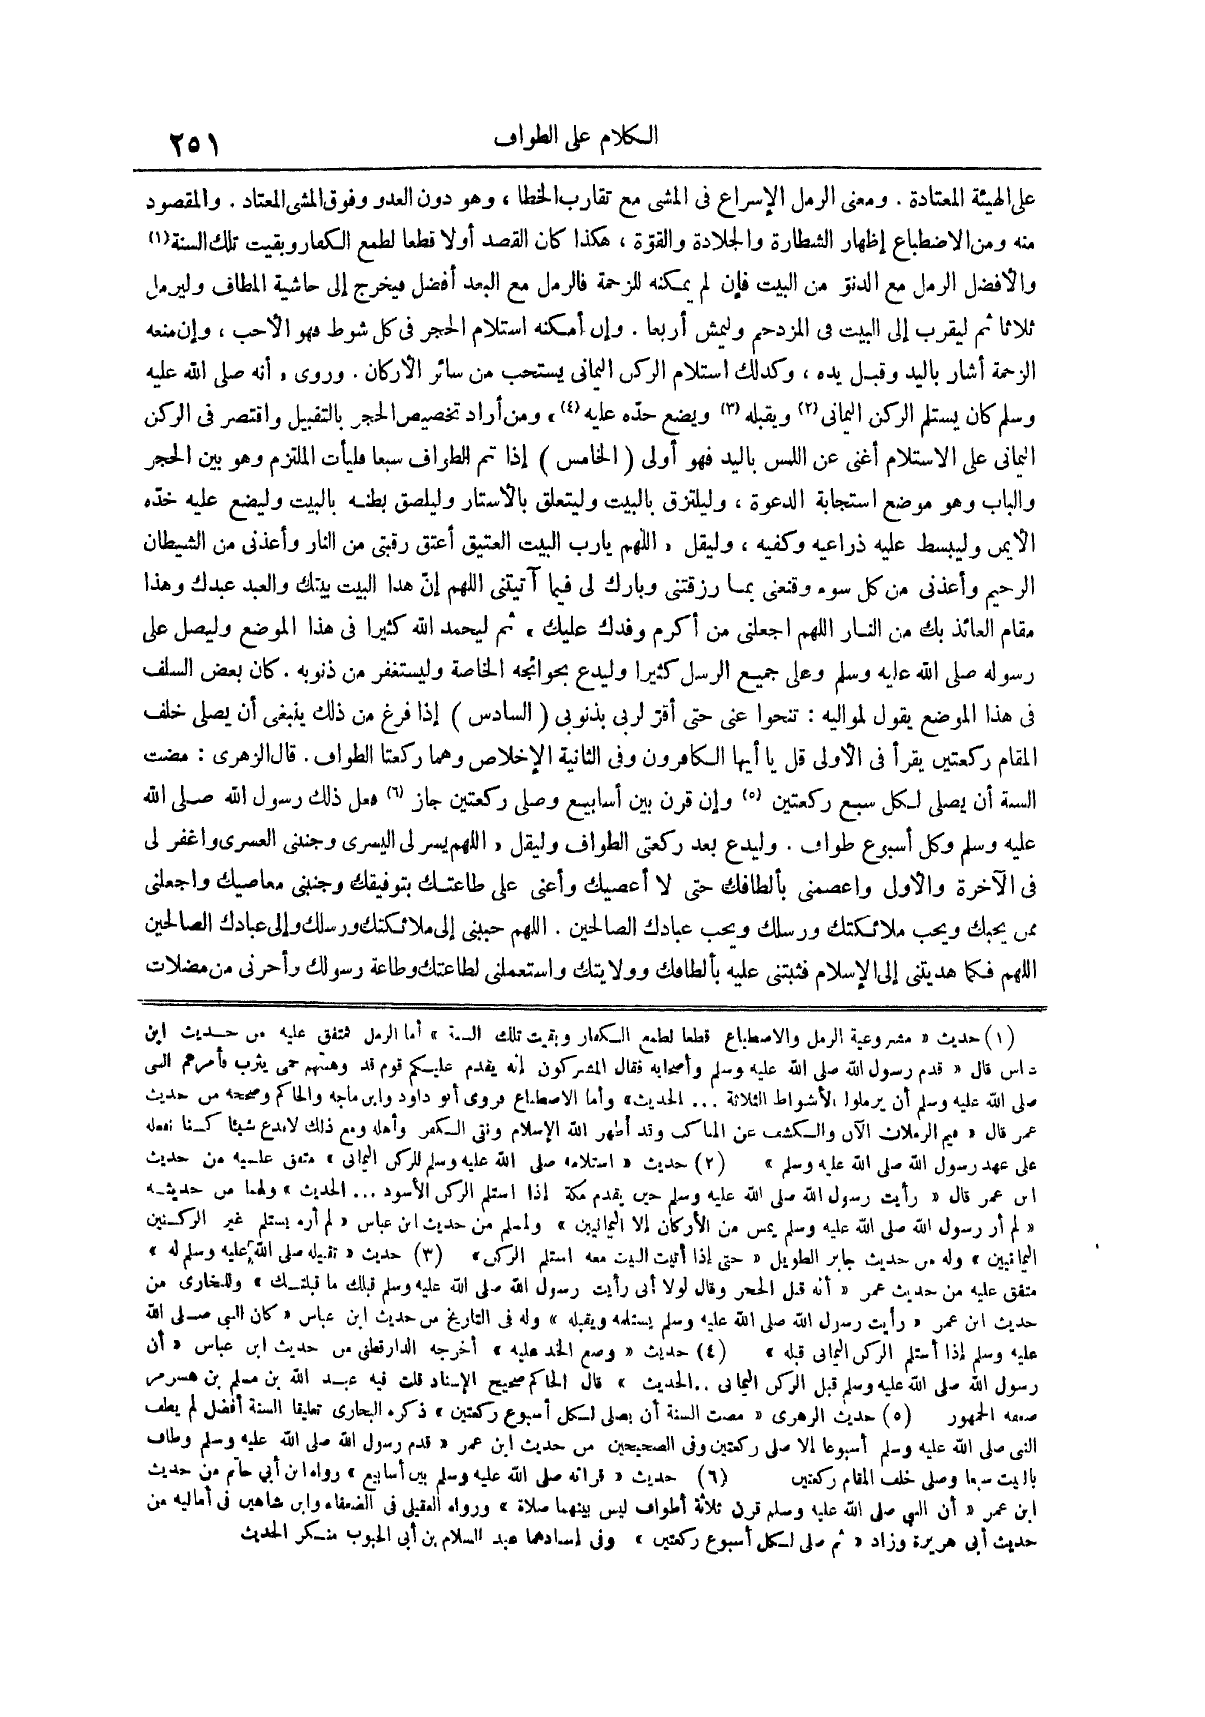 الكلام على الطواف
٢٥١
على الهيئة المعتادة . ومعنى الرمل الإسراع فى المشى مع تقارب الخطا ، وهو دون العدو وفوق المشى المعتاد . والمقصود
منه ومن الاضطباع إظهار الشطارة والجلادة والقوّة ، هكذا كان القصد أولا قطعا لطمع الكفار وبقيت تلك السنة (١)
والأفضل الرمل مع الدنوّ من البيت فإن لم يمكنه للزحمة فالرمل مع البعد أفضل فيخرج إلى حاشية المطاف وليرمل
ثلاثا ثم ليقرب إلى البيت فى المزدحم وليمش أربعا . وإن أمكنه استلام الحجر فى كل شوط فهو الأحب ، وإن منعه
الزحمة أشار باليد وقبل يده ، وكذلك استلام الركن اليمانى يستحب من سائر الأركان . وروى « أنه صلى الله عليه
وسلم كان يستلم الركن اليمانى (٢) ويقبله (٣) ويضع خدّه عليه (٤) » ومن أراد تخصيص الحجر بالتقبيل واقتصر فى الركن
اليمانى على الاستلام أغنى عن اللمس باليد فهو أولى ( الخامس ) إذا تم الطواف سبعا فليأت الملتزم وهو بين الحجر
والباب وهو موضع استجابة الدعوة ، وليلتزق بالبيت وليتعلق بالأستار وليلصق بطنه بالبيت وليضع عليه خدّه
الأيمن وليبسط عليه ذراعيه وكفيه ، وليقل « اللهم يارب البيت العتيق أعتق رقبتى من النار وأعذنى من الشيطان
الرجيم وأعذنى من كل سوء وقنعنى بما رزقتنى وبارك لى فيما آتيتنى اللهم إنّ هذا البيت بيتك والعبد عبدك وهذا
مقام العائذ بك من النار اللهم اجعلنى من أكرم وفدك عليك » ثم ليحمد الله كثيرا فى هذا الموضع وليصل على
رسوله صلى الله عليه وسلم وعلى جميع الرسل كثيرا وليدع بحوائجه الخاصة وليستغفر من ذنوبه . كان بعض السلف
فى هذا الموضع يقول لمواليه : تنحوا عنى حتى أقرّ لربى بذنوبى ( السادس ) إذا فرغ من ذلك ينبغى أن يصلى خلف
المقام ركعتين يقرأ فى الأولى قل يا أيها الكافرون وفى الثانية الإخلاص وهما ركعتا الطواف . قال الزهرى : مضت
السنة أن يصلى لكل سبع ركعتين (٥) وإن قرن بين أسابيع وصلى ركعتين جاز (٦) فعل ذلك رسول الله صلى الله
عليه وسلم وكل أسبوع طواف . وليدع بعد ركعتى الطواف وليقل « اللهم يسر لى اليسرى وجنبنى العسرى واغفر لى
فى الآخرة والأولى واعصمنى بألطافك حتى لا أعصيك وأعنى على طاعتك بتوفيقك وجنبنى معاصيك واجعلنى
ممن يحبك ويحب ملائكتك ورسلك ويحب عبادك الصالحين . اللهم حببنى إلى ملائكتك ورسلك وإلى عبادك الصالحين
اللهم فكما هديتنى إلى الإسلام فثبتنى عليه بألطافك وولايتك واستعملنى لطاعتك وطاعة رسولك وأجرنى من مضلات
(١) حديث « مشروعية الرمل والاضطباع قطعا لطمع الكفار وبقيت تلك السنة » أما الرمل فمتفق عليه من حديث ابن
عباس قال « قدم رسول الله صلى الله عليه وسلم وأصحابه فقال المشركون إنه يقدم عليكم قوم قد وهنتهم حمى يثرب فأمرهم النبى
صلى الله عليه وسلم أن يرملوا الأشواط الثلاثة ... الحديث » وأما الاضطباع فروى أبو داود وابن ماجه والحاكم وصححه من حديث
عمر قال « فيم الرملان الآن والكشف عن المناكب وقد أظهر الله الإسلام ونفى الكفر وأهله ومع ذلك لاندع شيئا كنا نفعله
على عهد رسول الله صلى الله عليه وسلم » (٢) حديث « استلامه صلى الله عليه وسلم للركن اليمانى » متفق عليه من حديث
ابن عمر قال « رأيت رسول الله صلى الله عليه وسلم حين يقدم مكة إذا استلم الركن الأسود ... الحديث » ولهما من حديثه
« لم أر رسول الله صلى الله عليه وسلم يمس من الأركان إلا اليمانيين » ولمسلم من حديث ابن عباس « لم أره يستلم غير الركنين
اليمانيين » وله من حديث جابر الطويل « حتى إذا أتيت البيت معه استلم الركن » (٣) حديث « تقبيله صلى الله عليه وسلم له »
متفق عليه من حديث عمر « أنه قبل الحجر وقال لولا أنى رأيت رسول الله صلى الله عليه وسلم قبلك ما قبلتك » وللبخارى من
حديث ابن عمر « رأيت رسول الله صلى الله عليه وسلم يستلمه ويقبله » وله فى التاريخ من حديث ابن عباس « كان النبى صلى الله
عليه وسلم إذا أستلم الركن اليمانى قبله » (٤) حديث « وضع الخد عليه » أخرجه الدارقطنى من حديث ابن عباس « أن
رسول الله صلى الله عليه وسلم قبل الركن اليمانى ..الحديث » قال الحاكم صحيح الإسناد قلت فيه عبد الله بن مسلم بن هرمز
ضعفه الجمهور (٥) حديث الزهرى « مضت السنة أن يصلى لكل أسبوع ركعتين » ذكره البخارى تعليقا السنة أفضل لم يطف
النبى صلى الله عليه وسلم أسبوعا إلا صلى ركعتين وفى الصحيحين من حديث ابن عمر « قدم رسول الله صلى الله عليه وسلم وطاف
بالبيت سبعا وصلى خلف المقام ركعتين (٦) حديث « قرانه صلى الله عليه وسلم بين أسابيع » رواه ابن أبي حاتم من حديث
ابن عمر « أن النبى صلى الله عليه وسلم قرن ثلاثة أطواف ليس بينهما صلاة » ورواه العقيلى فى الضعفاء وابن شاهين فى أماليه من
حديث أبى هريرة وزاد « ثم صلى لكل أسبوع ركعتين » وفى إسنادهما عبد السلام بن أبى الحبوب منكر الحديث